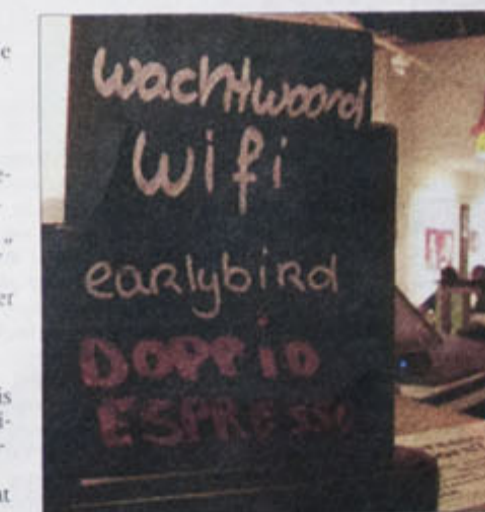 wachtwoord
wifi
earlybird
DOPPiO
ESPRESSO